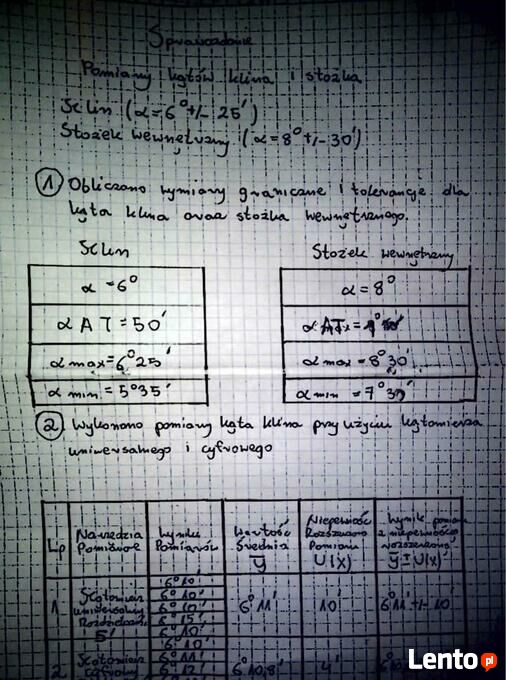 Sprawozdanie
Pomiary kątów klina i stożka
Klin (α=6° +/- 25')
Stożek wewnętrzny (α=8° +/- 30')
① Obliczono wymiary graniczne i tolerancje dla
kąta klina oraz stożka wewnętrznego.
Klin
α=6°
α AT=50'
α max=6°25'
α min=5°35'
Stożek wewnętrzny
α=8°
α max=8°30'
α min=7°30'
② Wykonano pomiary kąta klina przy użyciu kątomierza
uniwersalnego i cyfrowego
Lp
Narzędzia
Pomiarowe
Wyniki
Pomiarów
Wartość
Średnia
ȳ
Niepewność
Rozszerzona
Pomiaru
U(x)
Wynik pomiaru
z niepewnością
rozszerzoną
ȳ±U(x)
1
Kątomierz
uniwersalny
5'
6°10'
6°10'
6°10'
6°15'
6°10'
6°10'
6°11'
10'
6°11' +/- 10'
2
Kątomierz
cyfrowy
6°11'
6°12'
6°10,8'
4'
Lento.pl